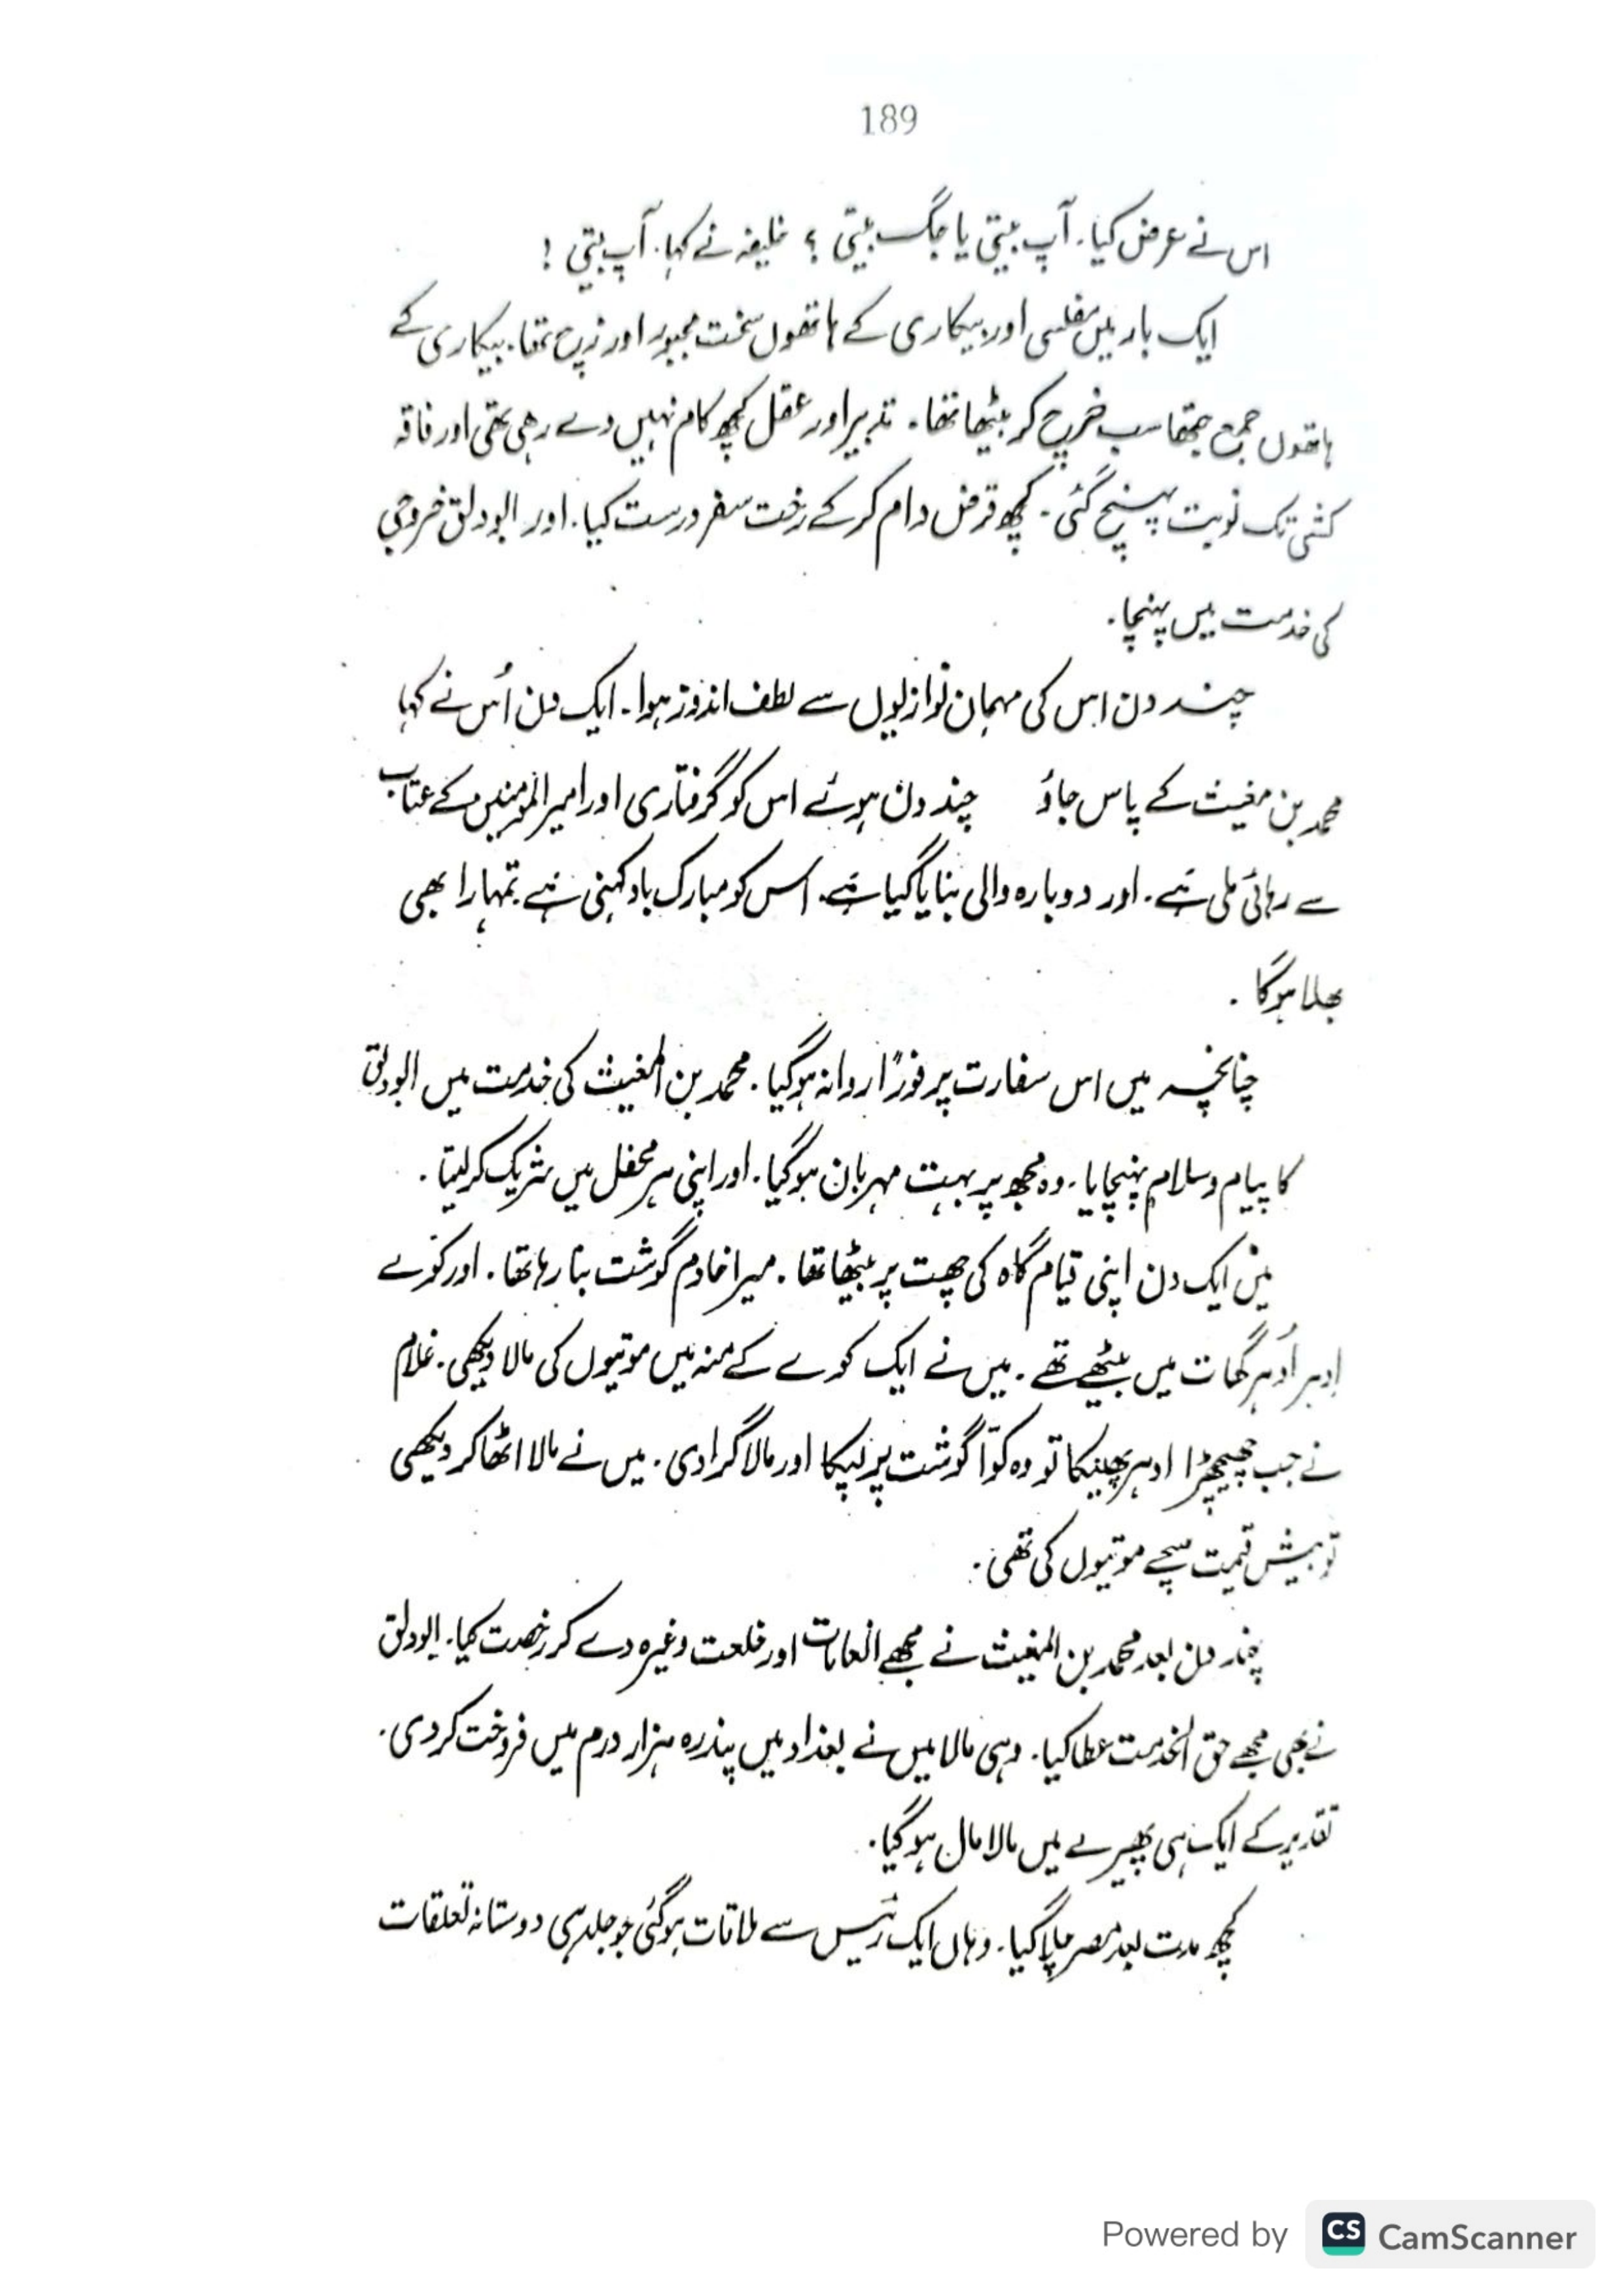 189
اس نے عرض کیا۔ آپ بیتی یا جگ بیتی ؟ خلیفہ نے کہا۔ آپ بیتی !
ایک بار میں مفلسی اور بیکاری کے ہاتھوں سخت مجبور اور زچ تھا۔ بیکاری کے
ہاتھوں جمع جتھا سب خرچ کر بیٹھا تھا۔ تدبیر اور عقل کچھ کام نہیں دے رہی تھی اور فاقہ
کشی تک نوبت پہنچ گئی۔ کچھ قرض دام کر کے رخت سفر درست کیا۔ اور ابودلق خروجی
کی خدمت میں پہنچا۔
چند دن اس کی مہمان نوازیوں سے لطف اندوز ہوا۔ ایک دن اُس نے کہا
محمد بن مغیث کے پاس جاؤ چند دن ہوئے اس کو گرفتاری اور امیر المومنین کے عتاب
سے رہائی ملی ہے۔ اور دوبارہ والی بنایا گیا ہے۔ اس کو مبارک باد کہنی ہے تمہارا بھی
بھلا ہوگا۔
چنانچہ میں اس سفارت پر فوراً روانہ ہوگیا۔ محمد بن المغیث کی خدمت میں ابودلق
کا پیام وسلام پہنچایا۔ وہ مجھ پر بہت مہربان ہوگیا۔ اور اپنی ہر محفل میں شریک کر لیتا۔
میں ایک دن اپنی قیام گاہ کی چھت پر بیٹھا تھا۔ میرا خادم گوشت بنا رہا تھا۔ اور کوے
اِدہر اُدہر گھات میں بیٹھے تھے۔ میں نے ایک کوے کے منہ میں موتیوں کی مالا دیکھی۔ غلام
نے جب چھیچھڑا ادہر پھینکا تو وہ کوّا گوشت پر لپکا اور مالا گرا دی۔ میں نے مالا اٹھا کر دیکھی
تو بیش قیمت سچے موتیوں کی تھی۔
چند دن بعد محمد بن المغیث نے مجھے انعامات اور خلعت وغیرہ دے کر رخصت کیا۔ ابودلق
نے بھی مجھے حق الخدمت عطا کیا۔ وہی مالا میں نے بغداد میں پندرہ ہزار درم میں فروخت کر دی۔
تقدیر کے ایک ہی پھیرے میں مالا مال ہوگیا۔
کچھ مدت بعد مصر چلا گیا۔ وہاں ایک رئیس سے ملاقات ہوگئی جو جلد ہی دوستانہ تعلقات
Powered by CS CamScanner